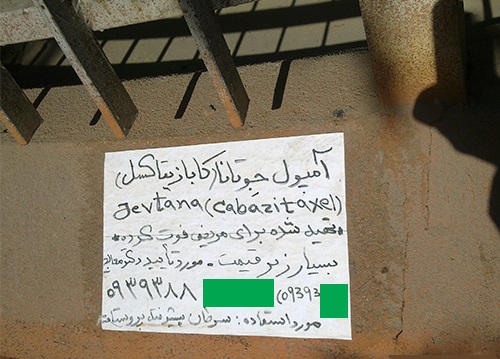 آمپول جوتانا (کابازیتاکسل)
Jevtana (Cabazitaxel)
تهیه شده برای مریض فوت کرده
بسیار زیر قیمت - مورد تایید دکتر معالج
۰۹۳۹۳۸۸ (09393
مورد استفاده: سرطان پیشرفته پروستات